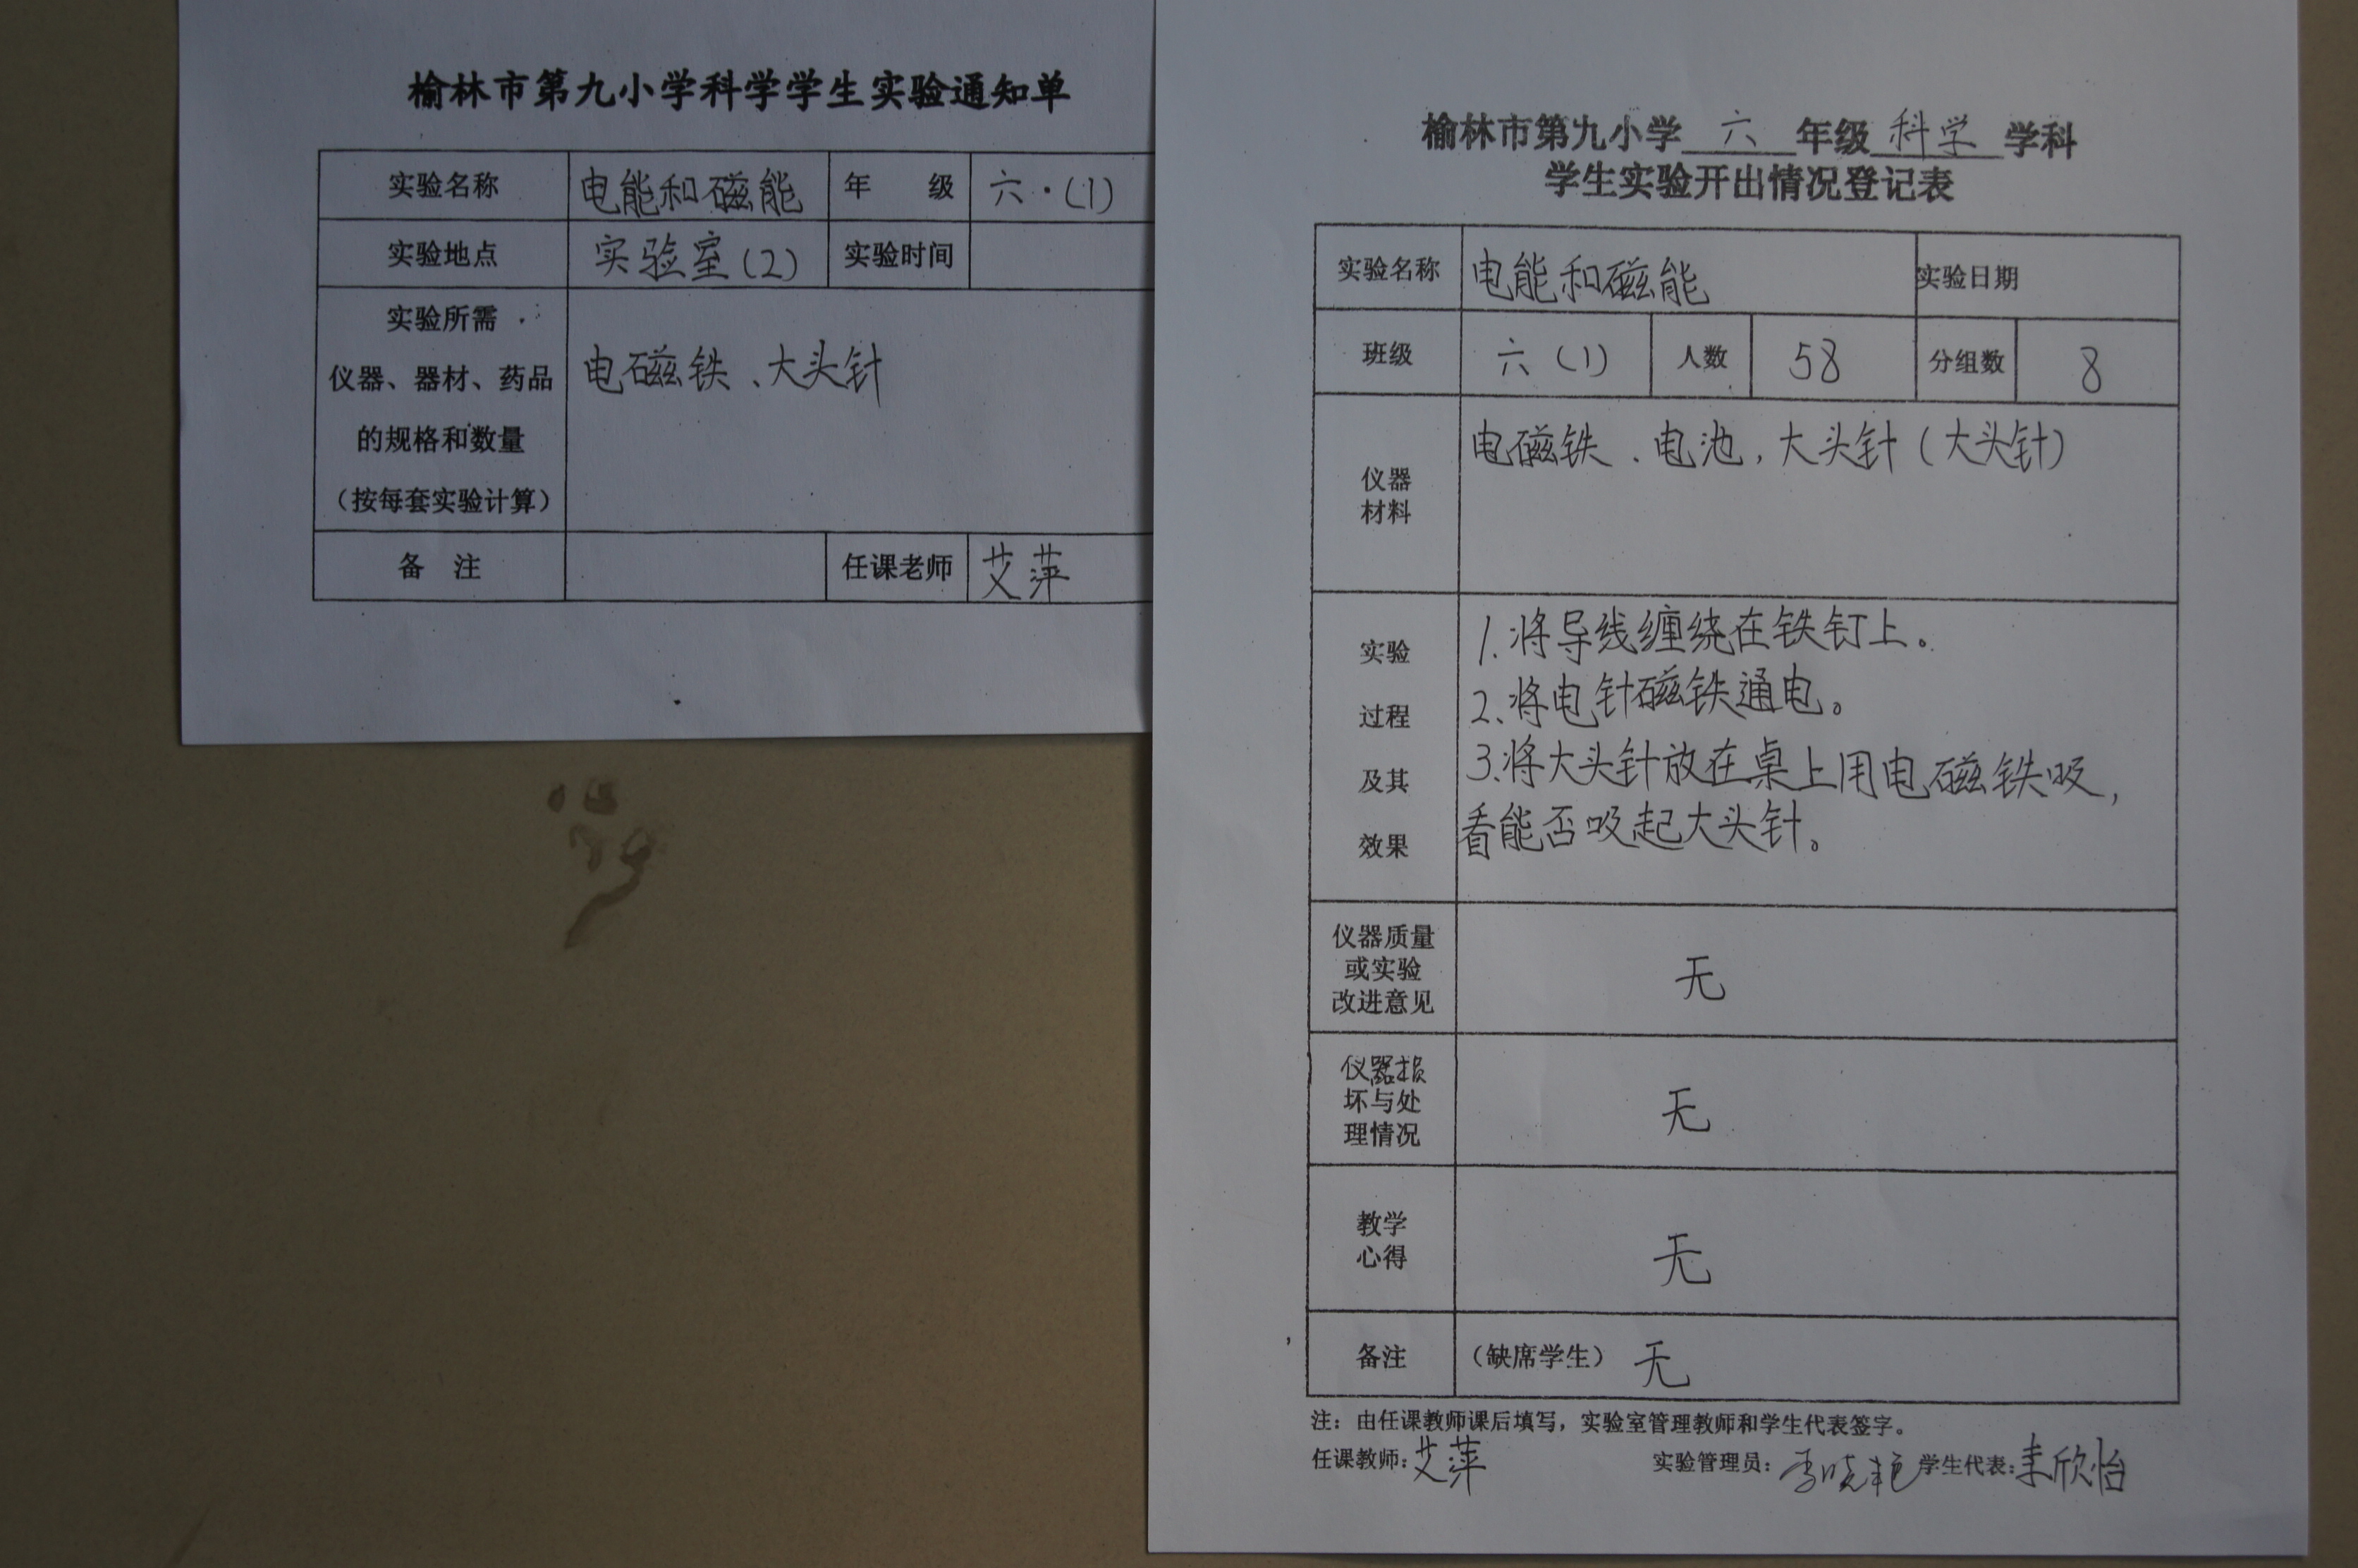 榆林市第九小学科学学生实验通知单
实验名称 电能和磁能 年 级 六·(1)
实验地点 实验室(2) 实验时间
实验所需
仪器、器材、药品
的规格和数量
（按每套实验计算）
电磁铁、大头针
备 注 任课老师 艾萍
榆林市第九小学 六 年级 科学 学科
学生实验开出情况登记表
实验名称 电能和磁能 实验日期
班级 六(1) 人数 58 分组数 8
仪器
材料
电磁铁、电池,大头针(大头针)
实验
过程
及其
效果
1.将导线缠绕在铁钉上。
2、将电针磁铁通电。
3、将大头针放在桌上用电磁铁吸,
看能否吸起大头针。
仪器质量
或实验
改进意见
无
仪器损
坏与处
理情况
无
教学
心得
无
备注 （缺席学生） 无
注：由任课教师课后填写，实验室管理教师和学生代表签字。
任课教师: 艾萍 实验管理员: 李晓艳 学生代表: 欣怡